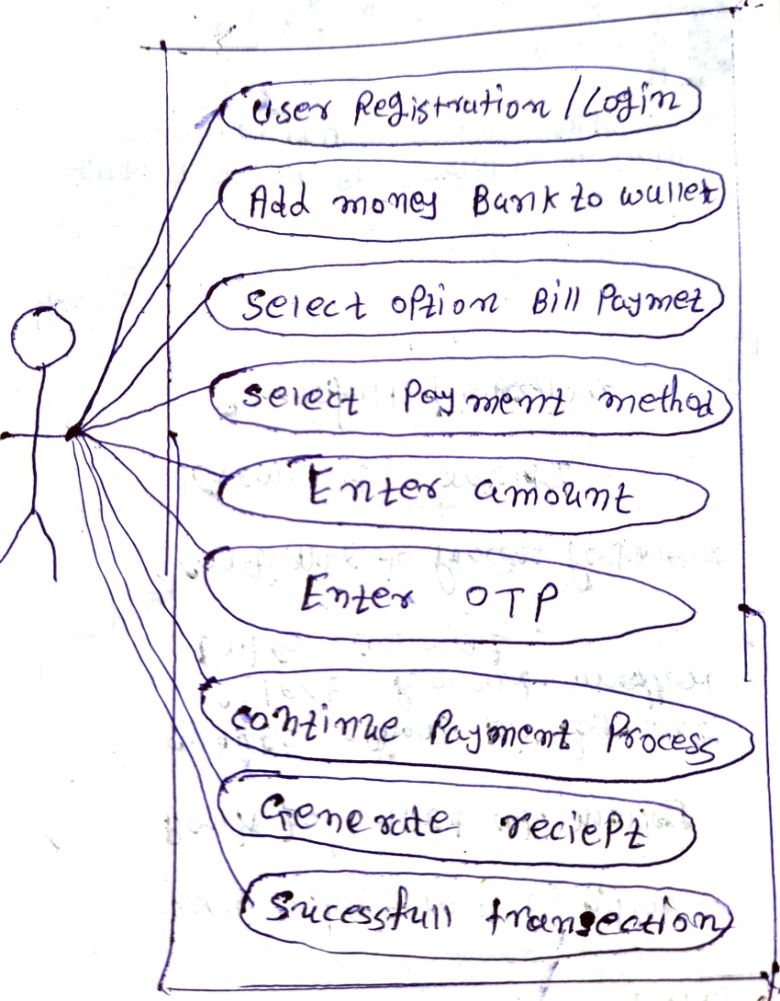 User Registration / Login
Add money Bank to wallet
Select option Bill Paymet
Select Payment method
Enter amount
Enter OTP
Continue Payment Process
Generate reciept
Sucessfull transection